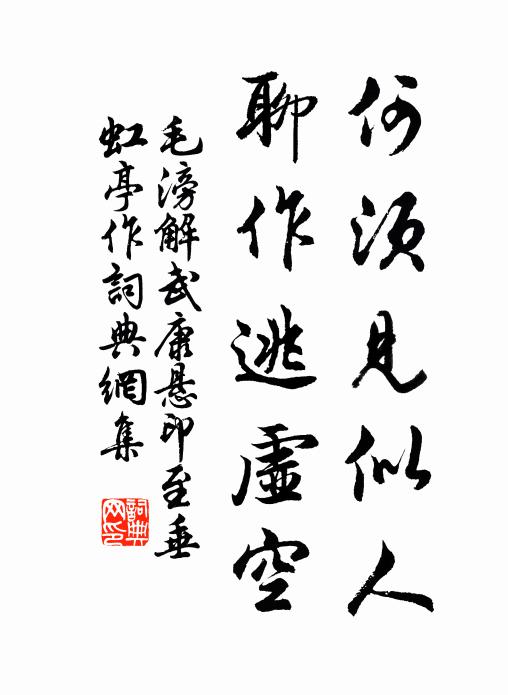 何須見似人
聊作逃虛空
毛滂解武康懸印至垂
虹亭作詞典網集
詞典網印